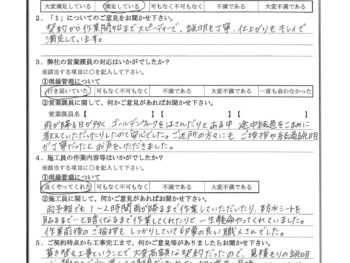 大変満足している 満足している 可もなく不可もなく 不満である 大変不満である
2．「1」についてのご意見をお聞かせ下さい。
契約から作業開始までスピーディーで、説明も丁寧、仕上がりもキレイで
満足しています。
3．弊社の営業課員の対応はいかがでしたか？
※該当する項目に○を記入して下さい。
①現場管理について
行き届いていた 可もなく不可もなく 不満である 大変不満である 一度も会わなかった
②営業課員に関して、何かご意見があればお聞かせ下さい。
営業課員名【 】【 】【 】
雨が降る日が多く、ゴールデンウィークをはさんだりとある中、途中経過をこまめに
教えていただいたりしたので安心でした。ご近所の方々にも、ご挨拶や経過説明
が丁寧だったとお声をいただきました。
4．施工員の作業内容等はいかがでしたか？
※該当する項目に○を記入して下さい。
①現場管理について
良くやってくれた 可もなく不可もなく 不満である 大変不満である
②施工員に関して、何かご意見があればお聞かせ下さい。
雨予報でも1〜2時間雨が降るまで作業していただいたり、防水シートを
貼るまで…と暗くなるまで作業してくれたりと一生懸命やってくれていました。
作業前後のご挨拶もしっかりしていて印象の良い職人さんでした。
5．ご契約時点から工事完了まで、何かご意見等がありましたらお聞かせ下さい。
葺き替え工事ということで大変高額な契約だったので、見積もりの説明